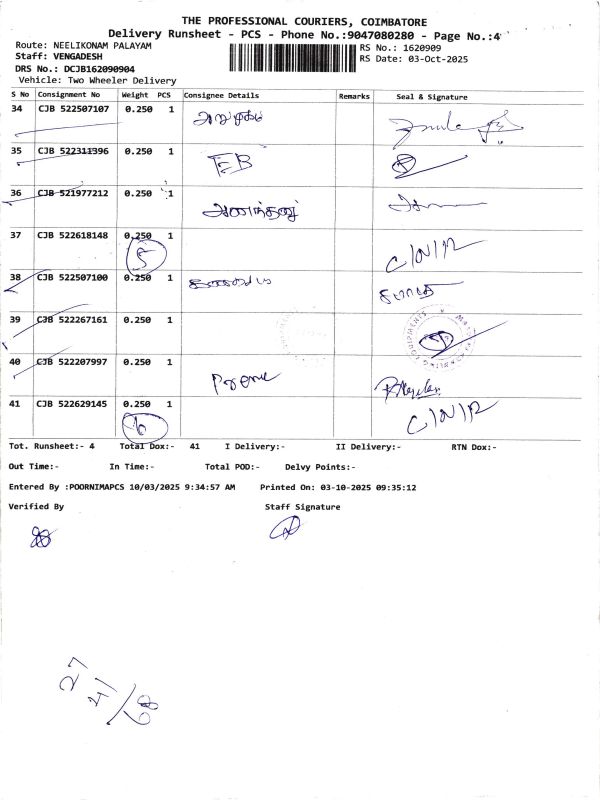 THE PROFESSIONAL COURIERS, COIMBATORE
Delivery Runsheet - PCS - Phone No.:9047080280 - Page No.:4
Route: NEELIKONAM PALAYAM
Staff: VENGADESH
DRS No.: DCJB162090904
Vehicle: Two Wheeler Delivery
RS No.: 1620909
RS Date: 03-Oct-2025
S No Consignment No Weight PCS Consignee Details Remarks Seal & Signature
34 CJB 522507107 0.250 1 ஆறுமுகம்
35 CJB 522311396 0.250 1 EB
36 CJB 521977212 0.250 1
37 CJB 522618148 0.250 1 C/N/R
5
38 CJB 522507100 0.250 1
39 CJB 522267161 0.250 1
40 CJB 522207997 0.250 1
41 CJB 522629145 0.250 1 C/N/R
6
Tot. Runsheet:- 4 Total Dox:- 41 I Delivery:- II Delivery:- RTN Dox:-
Out Time:- In Time:- Total POD:- Delvy Points:-
Entered By :POORNIMAPCS 10/03/2025 9:34:57 AM Printed On: 03-10-2025 09:35:12
Verified By Staff Signature
27
41
68